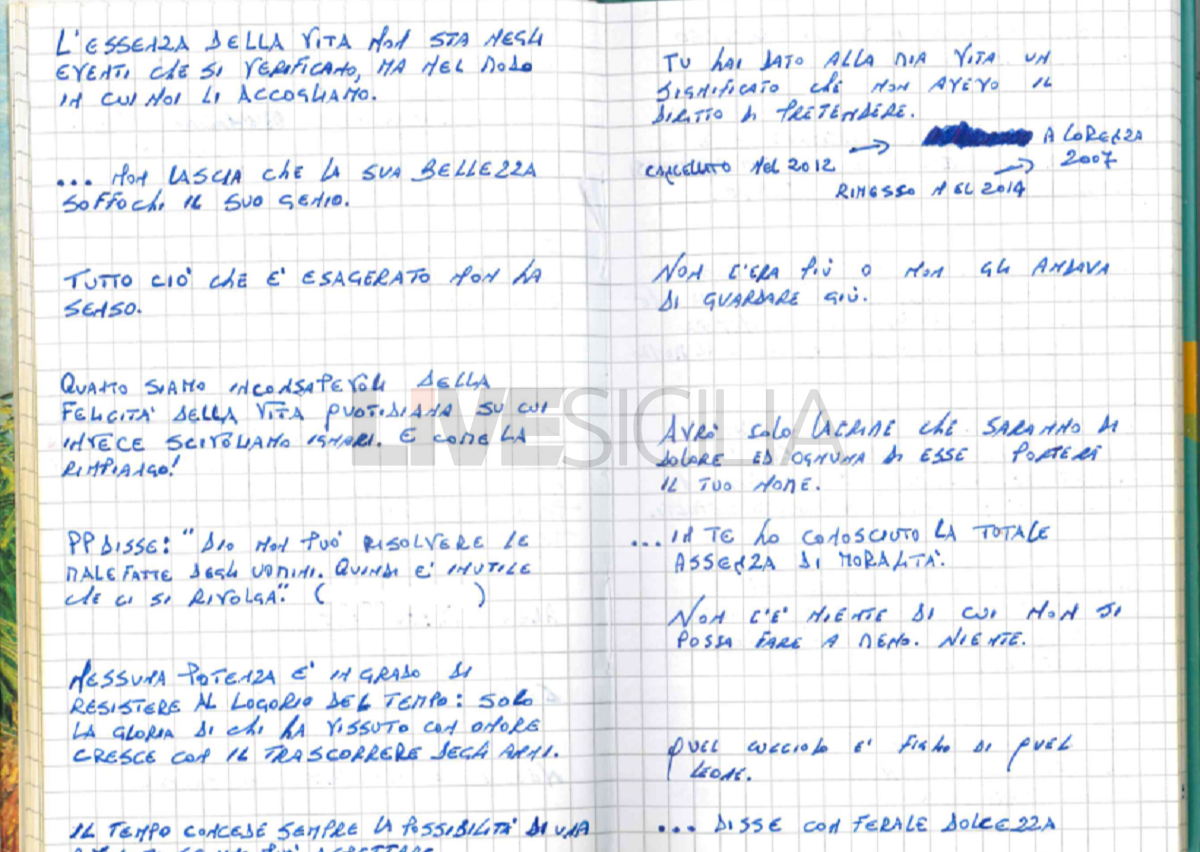 L'ESSENZA DELLA VITA NON STA NEGLI
EVENTI CHE SI VERIFICANO, MA NEL MODO
IN CUI NOI LI ACCOGLIAMO.
... NON LASCIA CHE LA SUA BELLEZZA
SOFFOCHI IL SUO GENIO.
TUTTO CIÒ CHE E' ESAGERATO NON HA
SENSO.
QUANTO SIAMO INCONSAPEVOLI DELLA
FELICITA' DELLA VITA QUOTIDIANA SU CUI
INVECE SCIVOLIAMO IGNARI. E COME LA
RIMPIANGO!
PP DISSE: "DIO NON PUÒ RISOLVERE LE
MALEFATTE DEGLI UOMINI. QUINDI E' INUTILE
CHE CI SI RIVOLGA". ( )
NESSUNA POTENZA E' IN GRADO DI
RESISTERE AL LOGORIO DEL TEMPO: SOLO
LA GLORIA DI CHI HA VISSUTO CON ONORE
CRESCE CON IL TRASCORRERE DEGLI ANNI.
IL TEMPO CONCEDE SEMPRE LA POSSIBILITA' DI UNA
TU HAI DATO ALLA MIA VITA UN
SIGNIFICATO CHE NON AVEVO IL
DIRITTO DI PRETENDERE.
A LORENZA
CANCELLATO NEL 2012 → → 2007
RIMESSO NEL 2014
NON C'ERA PIÙ O NON GLI ANDAVA
DI GUARDARE GIÙ.
AVRÒ SOLO LACRIME CHE SARANNO DI
DOLORE ED OGNUNA DI ESSE PORTERÀ
IL TUO NOME.
... IN TE HO CONOSCIUTO LA TOTALE
ASSENZA DI MORALITA'.
NON C'E' NIENTE DI CUI NON SI
POSSA FARE A MENO. NIENTE.
QUEL CUCCIOLO E' FIGLIO DI QUEL
LEONE.
... DISSE CON FERALE DOLCEZZA
LIVESICILIA